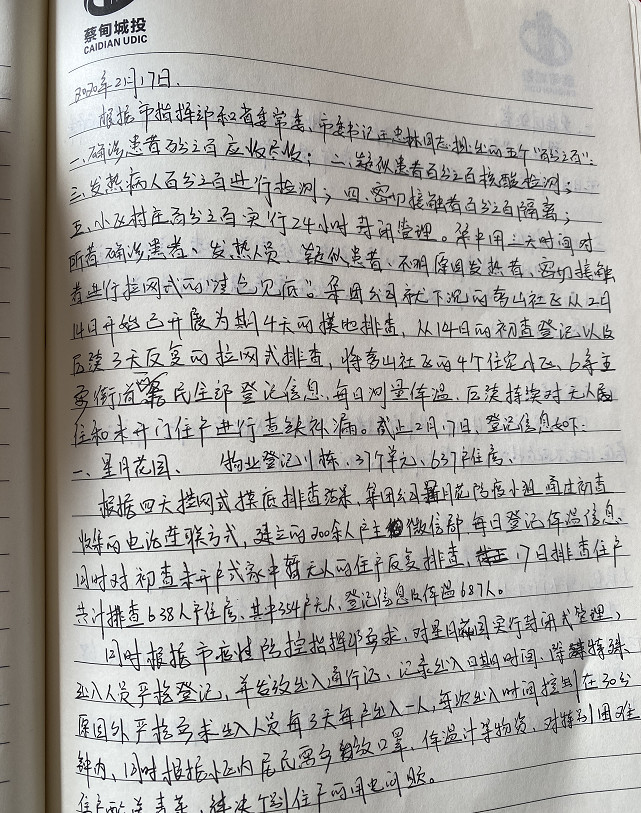 蔡甸城投
CAIDIAN UDIC
2020年2月17日.
根据市指挥部和省委常委、市委书记王忠林同志提出的五个"百分之百":
一、确诊患者百分之百应收尽收; 二、疑似患者百分之百核酸检测;
三、发热病人百分之百进行检测; 四、密切接触者百分之百隔离;
五、小区村庄百分之百实行24小时封闭管理。集中用三天时间对
所有确诊患者、发热人员、疑似患者、不明原因发热者、密切接触
者进行拉网式的"清仓见底"。集团公司就下沉的香山社区从2月
14日开始已开展为期4天的摸地排查, 从14日的初查登记、以及
后续3天反复的拉网式排查, 将香山社区的4个住宅小区、6条主
要街道居民全部登记信息、每日测量体温、后续持续对无人居
住和未开门住户进行查缺补漏。截止2月17日, 登记信息如下:
一、星月花园、 物业登记 栋、37个单元、637户住房、
根据四天拉网式摸底排查结果, 集团公司 防疫小组通过初查
收集的电话连联方式, 建立的300余人户主微信群, 每日登记体温信息.
同时对初查未开户或家中暂无人的住户反复排查, 17日排查住户
共计排查638人户住房, 其中354户无人, 登记信息及体温687人。
同时根据市疫情防控指挥部要求, 对星月花园实行封闭式管理;
出入人员严格登记, 并发放出入通行证、记录出入日期时间、除特殊
原因外严格要求出入人员每3天每户出入一人, 每次出入时间控制在30分
钟内, 同时根据小区内居民需要 放口罩、体温计等物资, 对特别困难
住户 送青菜, 解决个别住户的用电问题。